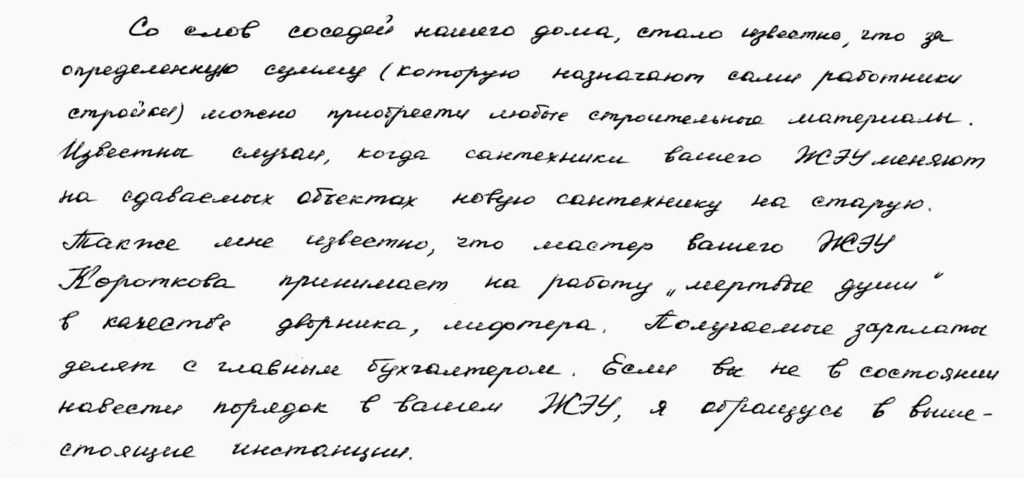 Со слов соседей нашего дома, стало известно, что за
определенную сумму (которую назначают сами работники
стройки) можно приобрести любые строительные материалы.
Известны случаи, когда сантехники вашего ЖЭУ меняют
на сдаваемых объектах новую сантехнику на старую.
Также мне известно, что мастер вашего ЖЭУ
Короткова принимает на работу „мертвые души"
в качестве дворника, лифтера. Получаемые зарплаты
делят с главным бухгалтером. Если вы не в состоянии
навести порядок в вашем ЖЭУ, я обращусь в выше-
стоящие инстанции.